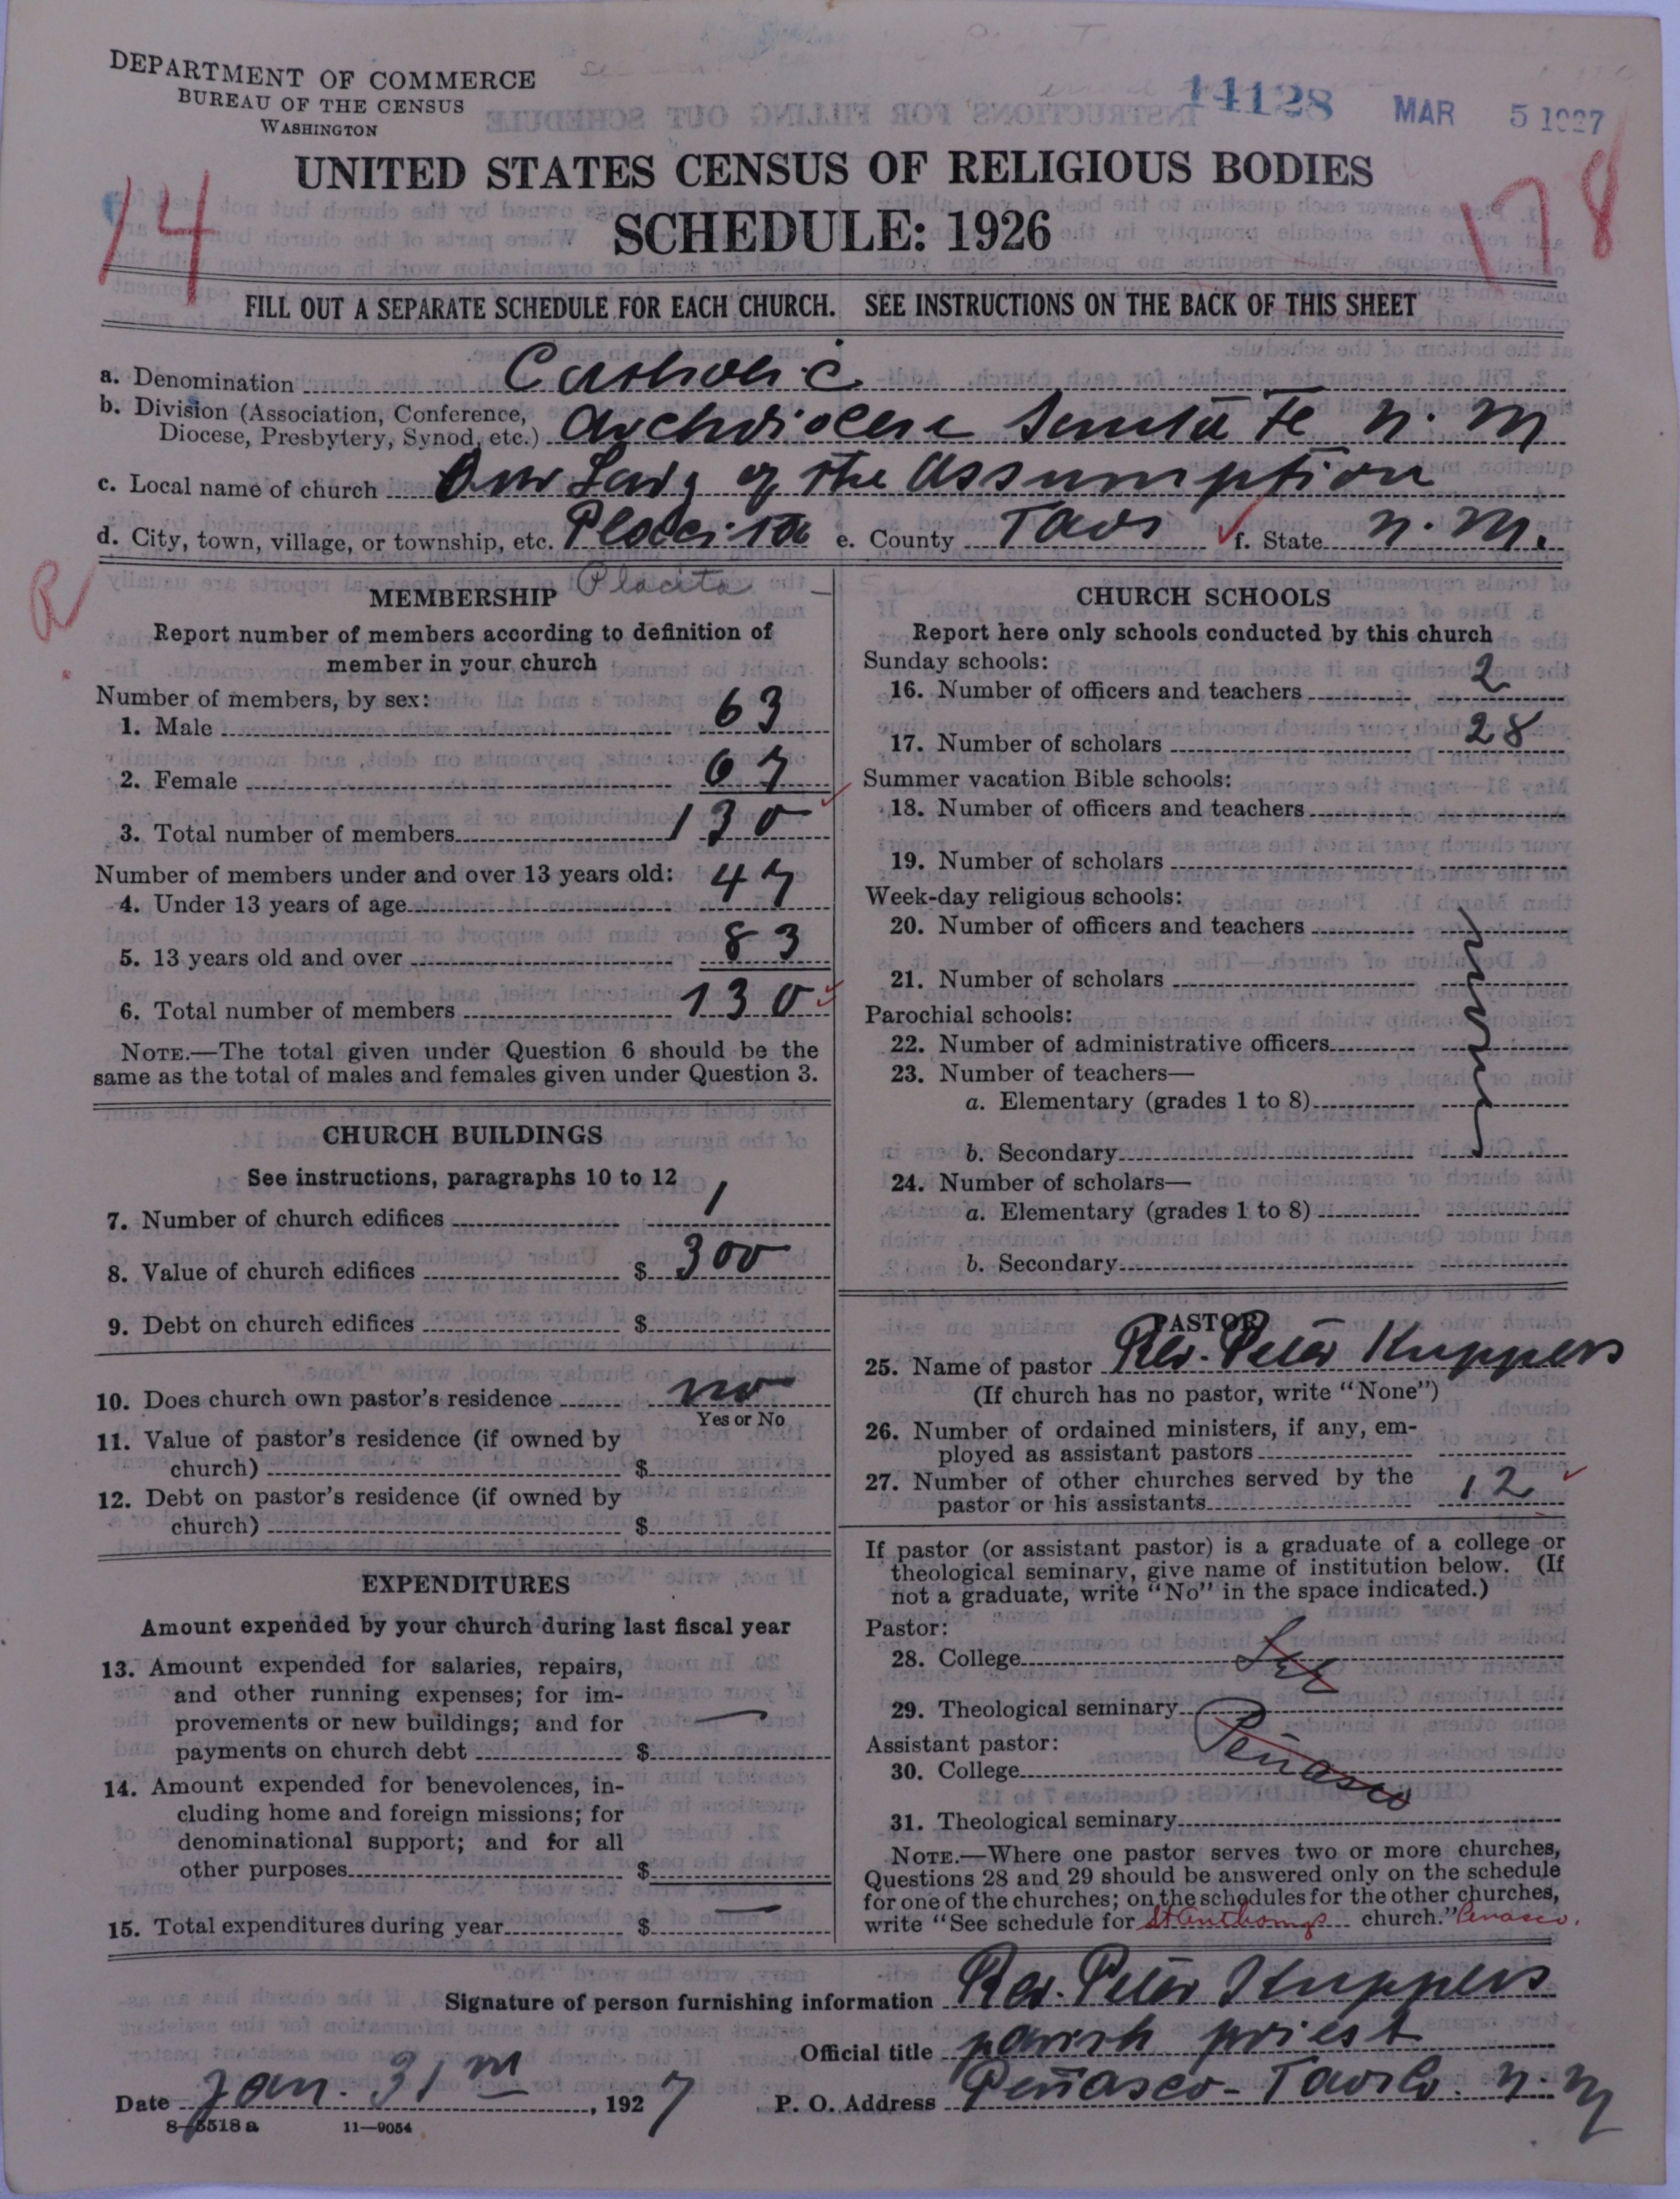 DEPARTMENT OF COMMERCE
BUREAU OF THE CENSUS
WASHINGTON
14128 MAR 5 1927
UNITED STATES CENSUS OF RELIGIOUS BODIES
SCHEDULE: 1926
14
178
FILL OUT A SEPARATE SCHEDULE FOR EACH CHURCH. SEE INSTRUCTIONS ON THE BACK OF THIS SHEET
a. Denomination Catholic
b. Division (Association, Conference,
Diocese, Presbytery, Synod, etc.) Archdiocese Santa Fe N. M
c. Local name of church Our Lady of the Assumption
d. City, town, village, or township, etc. Placita e. County Taos f. State N. M.
R
MEMBERSHIP Placita
Report number of members according to definition of
member in your church
Number of members, by sex:
1. Male 63
2. Female 67
3. Total number of members 130
Number of members under and over 13 years old:
4. Under 13 years of age 47
5. 13 years old and over 83
6. Total number of members 130
NOTE.—The total given under Question 6 should be the
same as the total of males and females given under Question 3.
CHURCH BUILDINGS
See instructions, paragraphs 10 to 12
7. Number of church edifices 1
8. Value of church edifices $ 300
9. Debt on church edifices $
10. Does church own pastor's residence no
Yes or No
11. Value of pastor's residence (if owned by
church) $
12. Debt on pastor's residence (if owned by
church) $
EXPENDITURES
Amount expended by your church during last fiscal year
13. Amount expended for salaries, repairs,
and other running expenses; for im-
provements or new buildings; and for
payments on church debt $ —
14. Amount expended for benevolences, in-
cluding home and foreign missions; for
denominational support; and for all
other purposes $
15. Total expenditures during year $ —
CHURCH SCHOOLS
Report here only schools conducted by this church
Sunday schools:
16. Number of officers and teachers 2
17. Number of scholars 28
Summer vacation Bible schools:
18. Number of officers and teachers
19. Number of scholars
Week-day religious schools:
20. Number of officers and teachers
21. Number of scholars
Parochial schools:
22. Number of administrative officers
23. Number of teachers—
a. Elementary (grades 1 to 8)
b. Secondary
24. Number of scholars—
a. Elementary (grades 1 to 8)
b. Secondary
PASTOR
25. Name of pastor Rev. Peter Kuppers
(If church has no pastor, write "None")
26. Number of ordained ministers, if any, em-
ployed as assistant pastors
27. Number of other churches served by the
pastor or his assistants 12
If pastor (or assistant pastor) is a graduate of a college or
theological seminary, give name of institution below. (If
not a graduate, write "No" in the space indicated.)
Pastor:
28. College
29. Theological seminary
Peñasco
Assistant pastor:
30. College
31. Theological seminary
NOTE.—Where one pastor serves two or more churches,
Questions 28 and 29 should be answered only on the schedule
for one of the churches; on the schedules for the other churches,
write "See schedule for St Anthonys church." Penasco.
Signature of person furnishing information Rev. Peter Kuppers
Official title parish priest
Date Jan. 31 , 1927 P. O. Address Peñasco - Taos Co. N. M
8-5518 a 11—9054